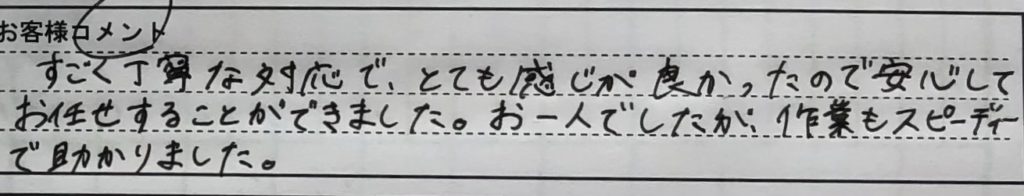 お客様コメント
すごく丁寧な対応で、とても感じが良かったので安心して
お任せすることができました。お一人でしたが、作業もスピーディー
で助かりました。